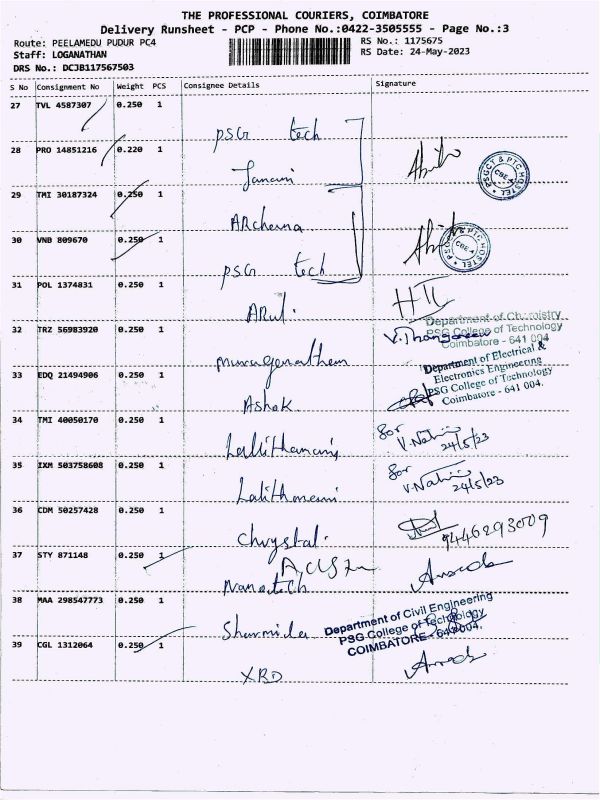 THE PROFESSIONAL COURIERS, COIMBATORE
Delivery Runsheet - PCP - Phone No.:0422-3505555 - Page No.:3
Route: PEELAMEDU PUDUR PC4
RS No.: 1175675
Staff: LOGANATHAN
RS Date: 24-May-2023
DRS No.: DC3B117567503
S No Consignment No Weight PCS Consignee Details Signature
27 TVL 4587307 0.250 1
PSG tech
28 PRO 14851216 0.220 1
Janani
PSGCT & PTC HOSTEL CBE-4
29 TMI 30187324 0.250 1
ARchana
30 VNB 809670 0.250 1
PSG tech
31 POL 1374831 0.250 1
ARul.
Department of Chemistry
PSG College of Technology
Coimbatore - 641 004
32 TRZ 56983920 0.250 1
V.Thangaraj
Department of Electrical &
Electronics Engineering
PSG College of Technology
Coimbatore - 641 004.
33 EDQ 21494906 0.250 1
Ashok.
34 TMI 40050170 0.250 1
for
24/5/23
35 IXM 503758608 0.250 1
for
24/5/23
36 CDM 50257428 0.250 1
Chrystal.
9446293009
37 STY 871148 0.250 1
Nanotech
38 MAA 298547773 0.250 1
Sharmila
Department of Civil Engineering
PSG College of Technology
COIMBATORE - 641004.
39 CGL 1312064 0.250 1
XRD